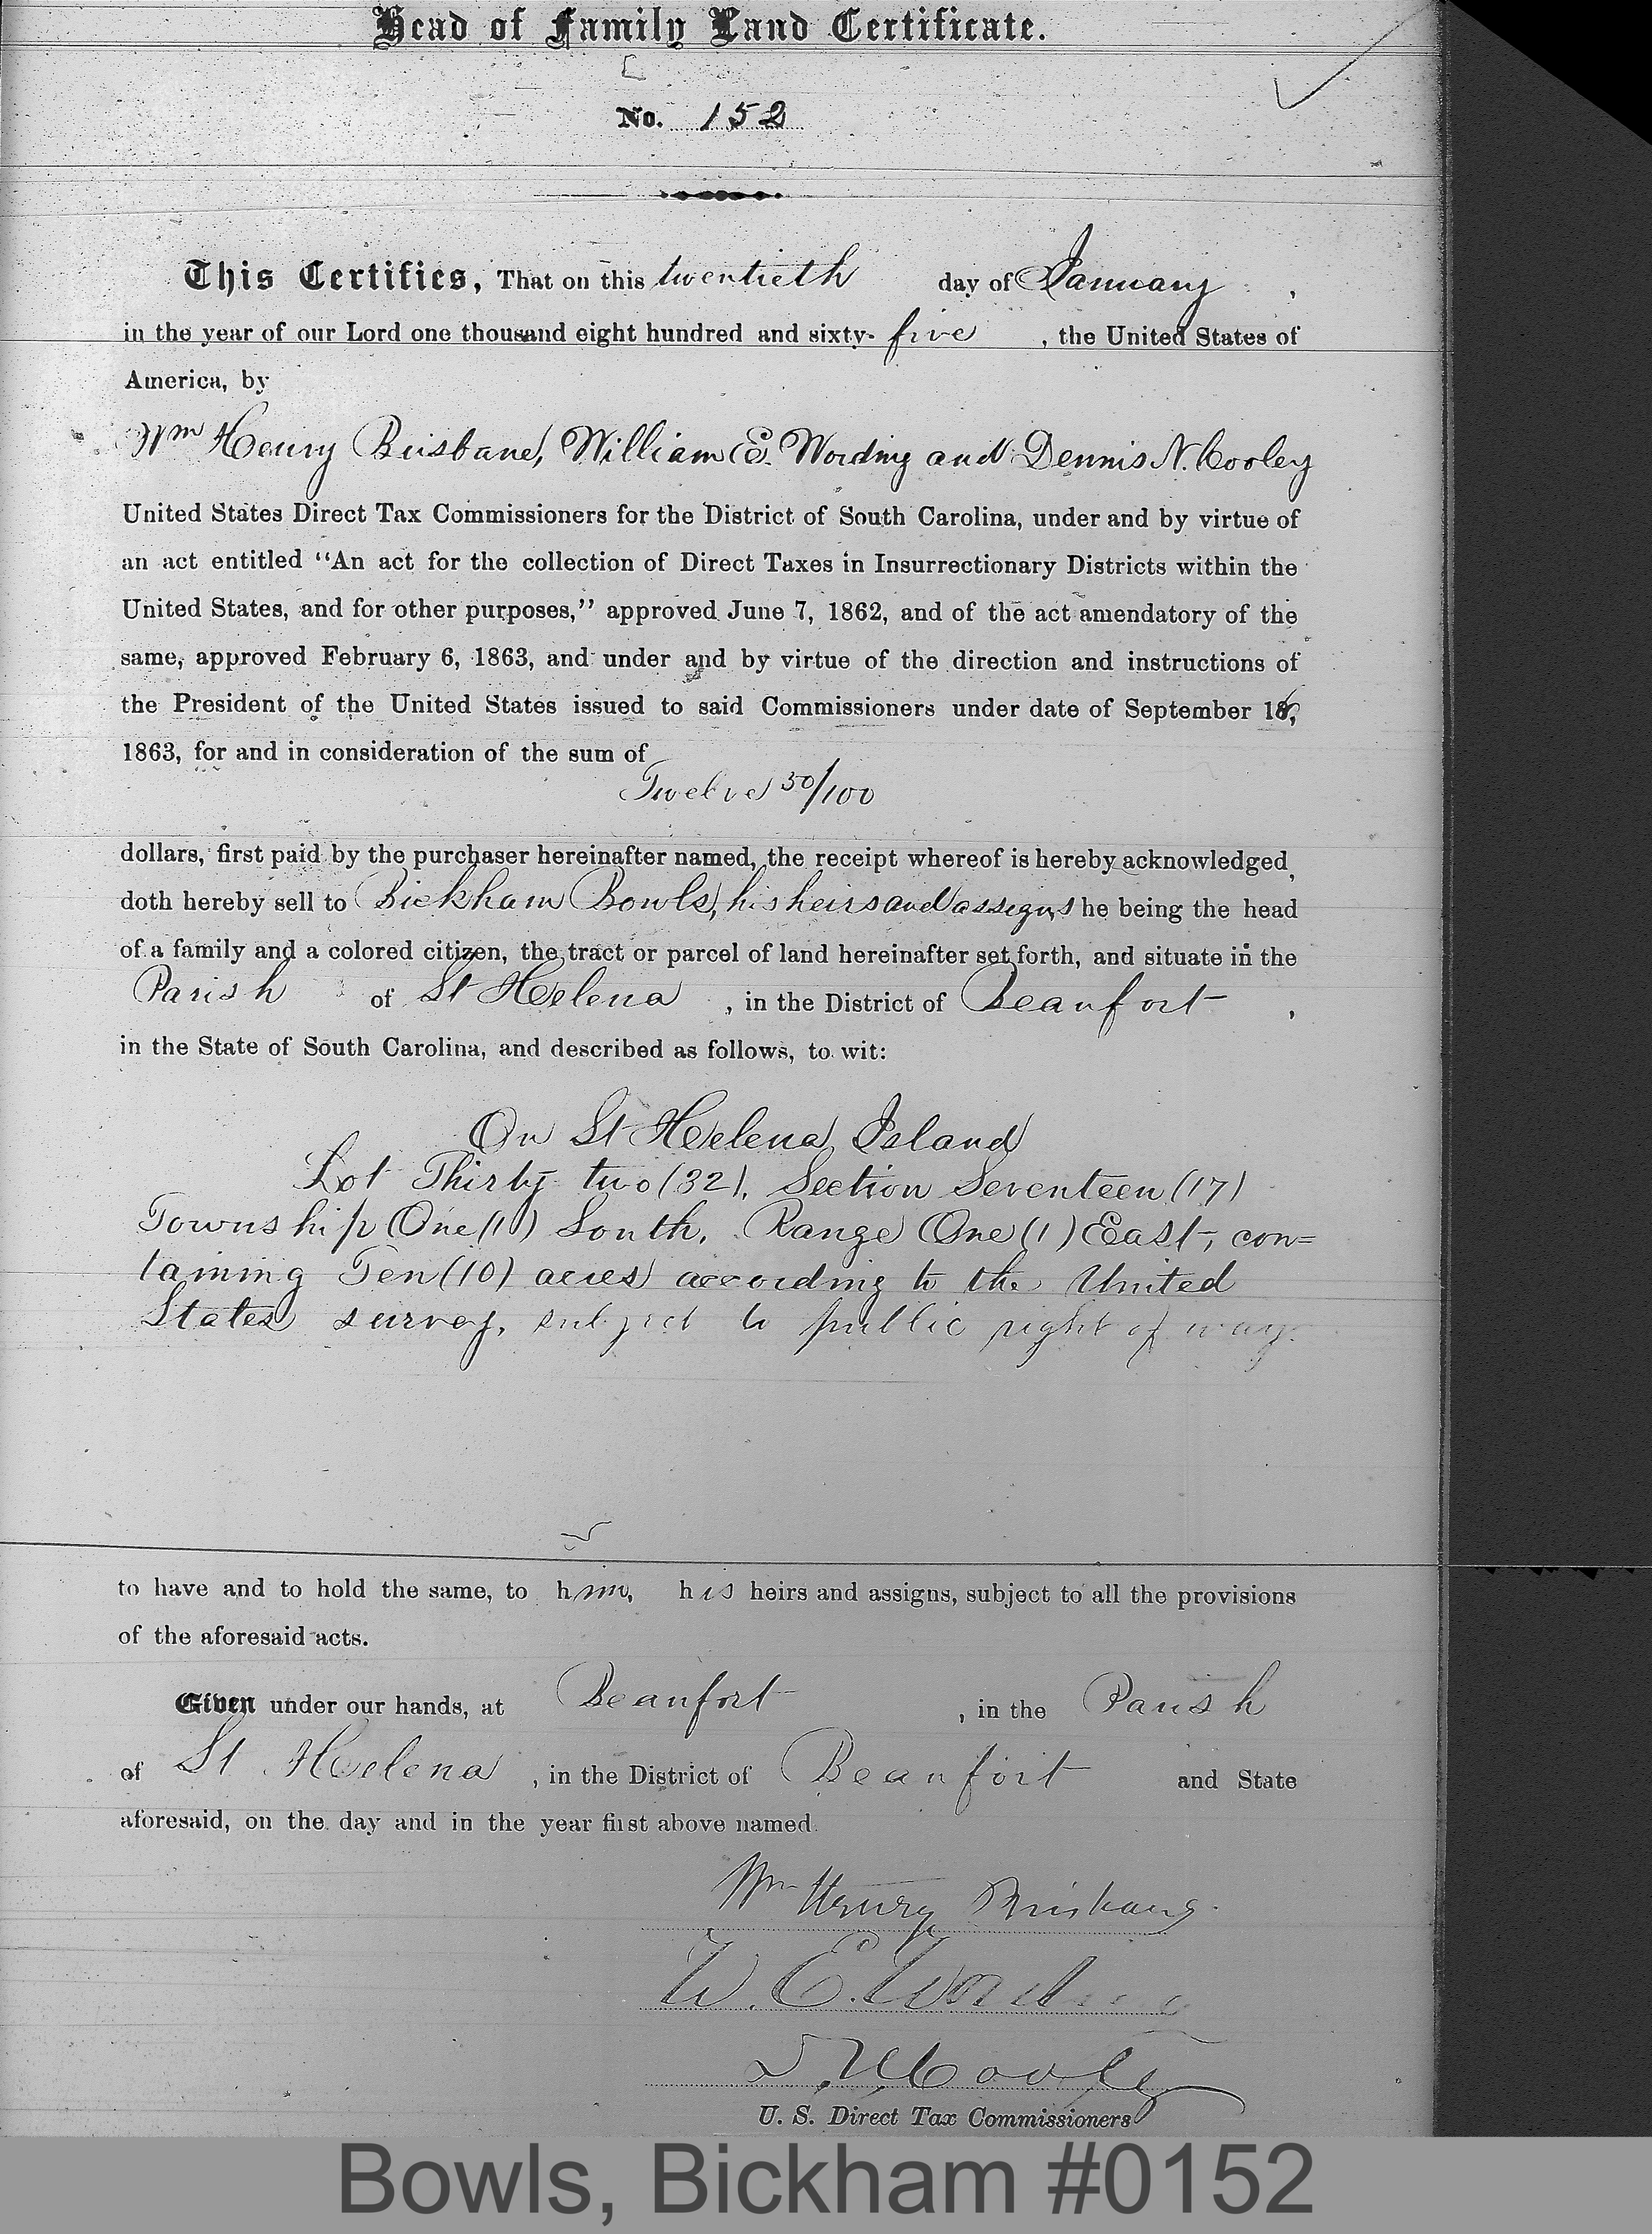 Head of Family Land Certificate.
No. 152
This Certifies, That on this twentieth day of January,
in the year of our Lord one thousand eight hundred and sixty-five, the United States of
America, by
Wm Henry Brisbane, William E. Wording and Dennis N. Cooley
United States Direct Tax Commissioners for the District of South Carolina, under and by virtue of
an act entitled "An act for the collection of Direct Taxes in Insurrectionary Districts within the
United States, and for other purposes," approved June 7, 1862, and of the act amendatory of the
same, approved February 6, 1863, and under and by virtue of the direction and instructions of
the President of the United States issued to said Commissioners under date of September 16,
1863, for and in consideration of the sum of
Twelve 50/100
dollars, first paid by the purchaser hereinafter named, the receipt whereof is hereby acknowledged,
doth hereby sell to Bickham Bowls, his heirs and assigns he being the head
of a family and a colored citizen, the tract or parcel of land hereinafter set forth, and situate in the
Parish of St Helena, in the District of Beaufort,
in the State of South Carolina, and described as follows, to wit:
On St Helena Island
Lot Thirty two (32), Section Seventeen (17)
Township One (1) South, Range One (1) East, con=
taining Ten (10) acres according to the United
States survey, subject to public right of way.
to have and to hold the same, to him, his heirs and assigns, subject to all the provisions
of the aforesaid acts.
Given under our hands, at Beaufort, in the Parish
of St Helena, in the District of Beaufort and State
aforesaid, on the day and in the year first above named.
Wm Henry Brisbane.
W. E. Wording
D. N. Cooley
U. S. Direct Tax Commissioners
Bowls, Bickham #0152